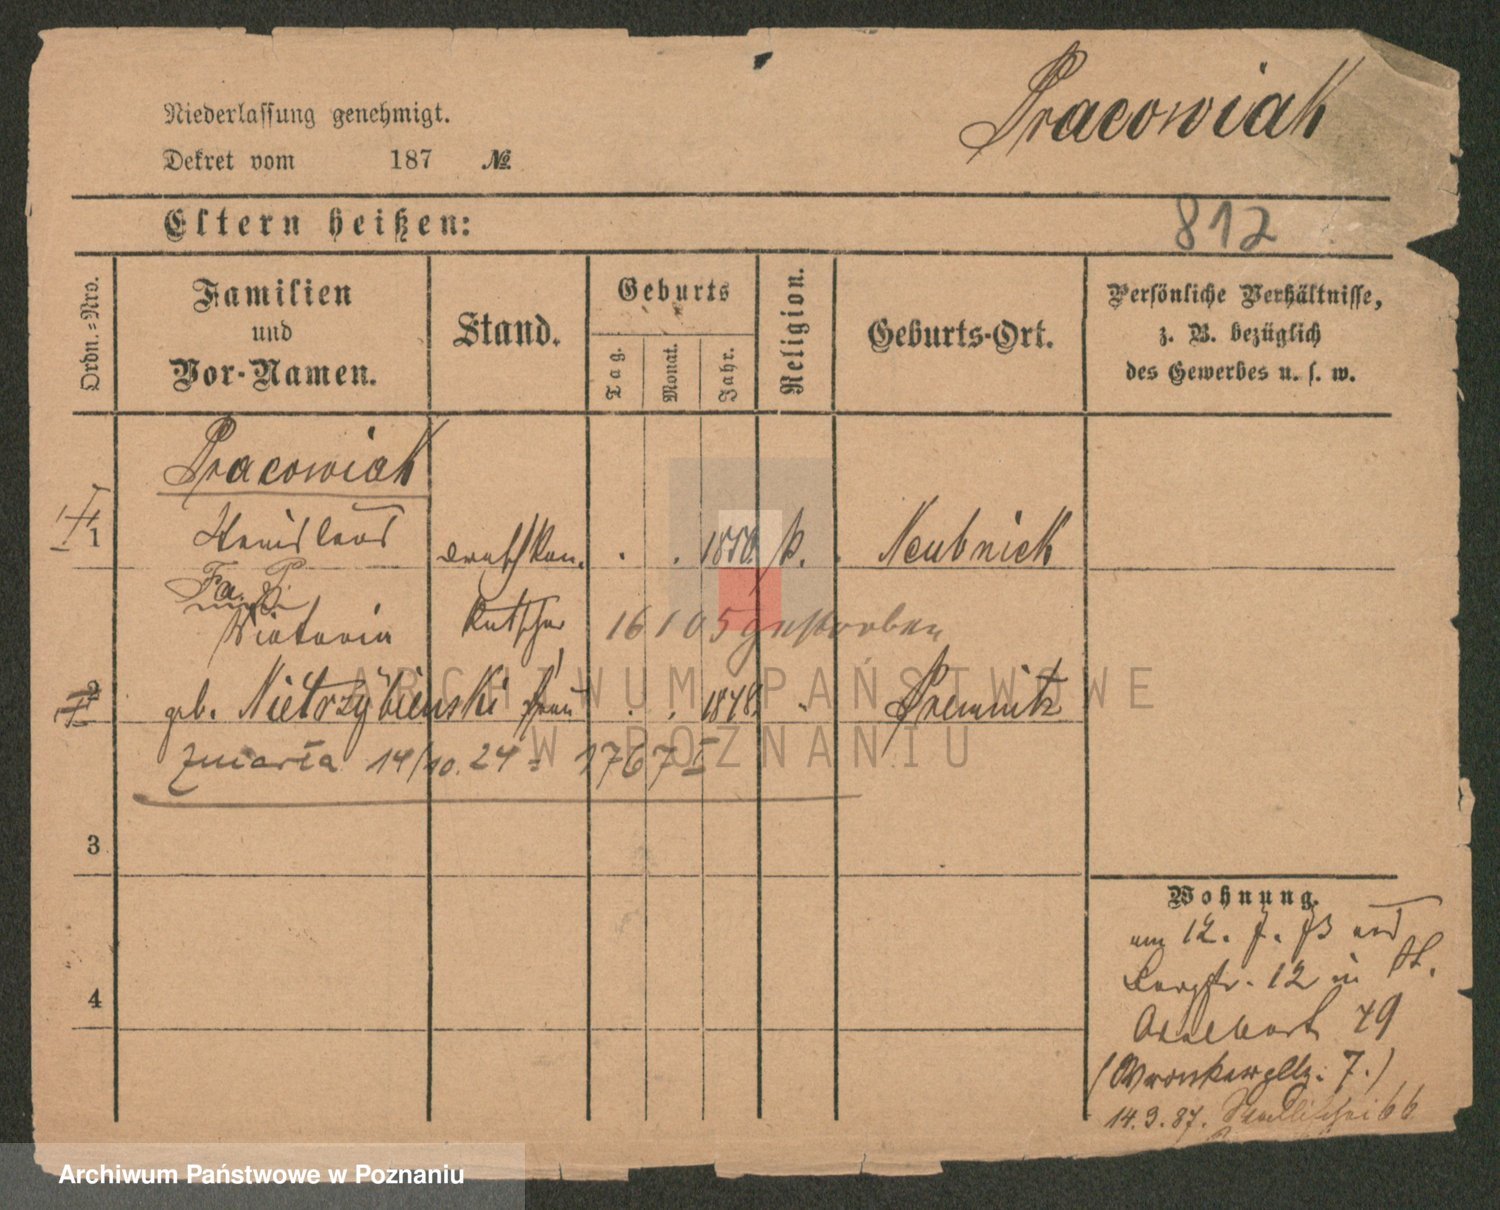 Pracowiak
Niederlassung genehmigt.
Dekret vom 187 №
Eltern heißen:
812
Ordn.=Nro.
Familien
und
Vor-Namen.
Stand.
Geburts
Tag.
Monat.
Jahr.
Religion.
Geburts-Ort.
Persönliche Verhältnisse,
z. B. bezüglich
des Gewerbes u. s. w.
Pracowiak
1 Stanislaus 1850. k. Neubnick
Kutscher 16 1 05 gestorben
Victoria
2 geb. Nietrzybienski Frau 1848. Premnitz
zmarła 14/10.24 = 1767 I
3
4
Wohnung.
am 12. 7. 73 von
Bergstr. 12 in St.
Adalbert 49
(Wronkerpltz. 7.)
14.3.87.
ARCHIWUM PAŃSTWOWE
W POZNANIU
Archiwum Państwowe w Poznaniu